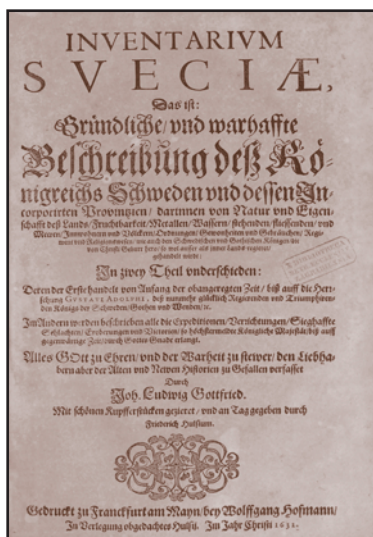 INVENTARIVM
SVECIÆ,
Das ist:
Gründliche/ vnd warhaffte
Beschreibung deß Kö-
nigreichs Schweden vnd dessen In-
corporirten Provinzien/ darinnen von Natur vnd Eigen-
schafft deß Lands/ Fruchtbarkeit/ Metallen/ Wassern/ stehenden/ fliessenden/ vnd
Meeren/ Inwohnern vnd Völckern/ Ordnungen/ Gewonheiten vnd Gebräuchen/ Regi-
ment vnd Religionswesen/ wie auch den Schwedischen vnd Gothischen Königen
von Christi Geburt hero/
gehandelt wirdt/
In zwey Theil vnderschieden:
Deren der Erste handelt von Anfang der obangeregten Zeit/ biß auff die Herr-
schung GVSTAVI ADOLPHI, deß nunmehr glücklich Regierenden vnd Triumphiren-
den Königs der Schweden/ Gothen vnd Wenden/ ec.
Im Andern werden beschrieben alle die Expeditionen/ Verrichtungen/ Sieghaffte
Schlachten/ Eroberungen vnd Victorien/ so höchstermeldte Königliche Majestät/ biß auff
gegenwärtige Zeit/ durch Gottes Gnade erlangt.
Alles GOtt zu Ehren/ vnd der Warheit zu stewer/ den Liebha-
bern aber der Alten vnd Newen Historien zu Gefallen verfasset
Durch
Joh. Ludwig Gottfried.
Mit schönen Kupfferstücken gezieret/ vnd an Tag gegeben durch
Friederich Hulsium.
Gedruckt zu Franckfurt am Mayn/ bey Wolffgang Hofmann/
In Verlegung obgedachtes Hulsij. Im Jahr Christi